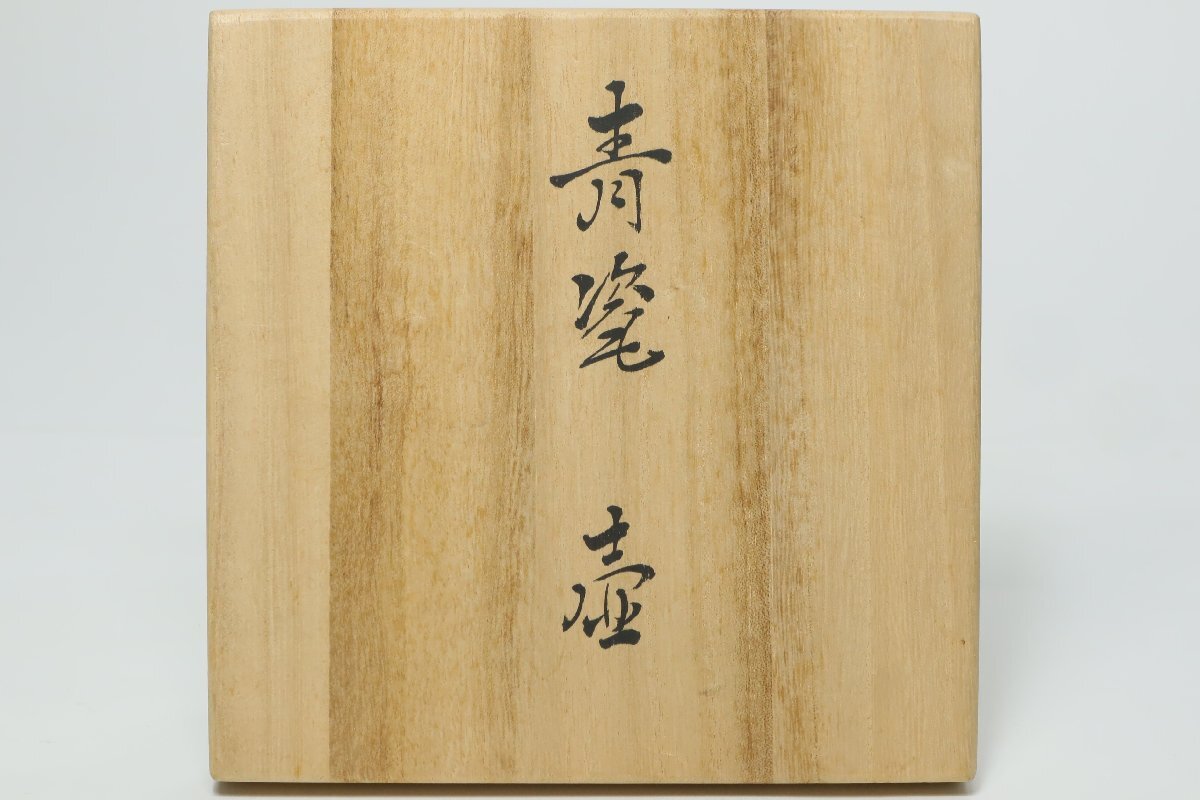 青瓷 壺